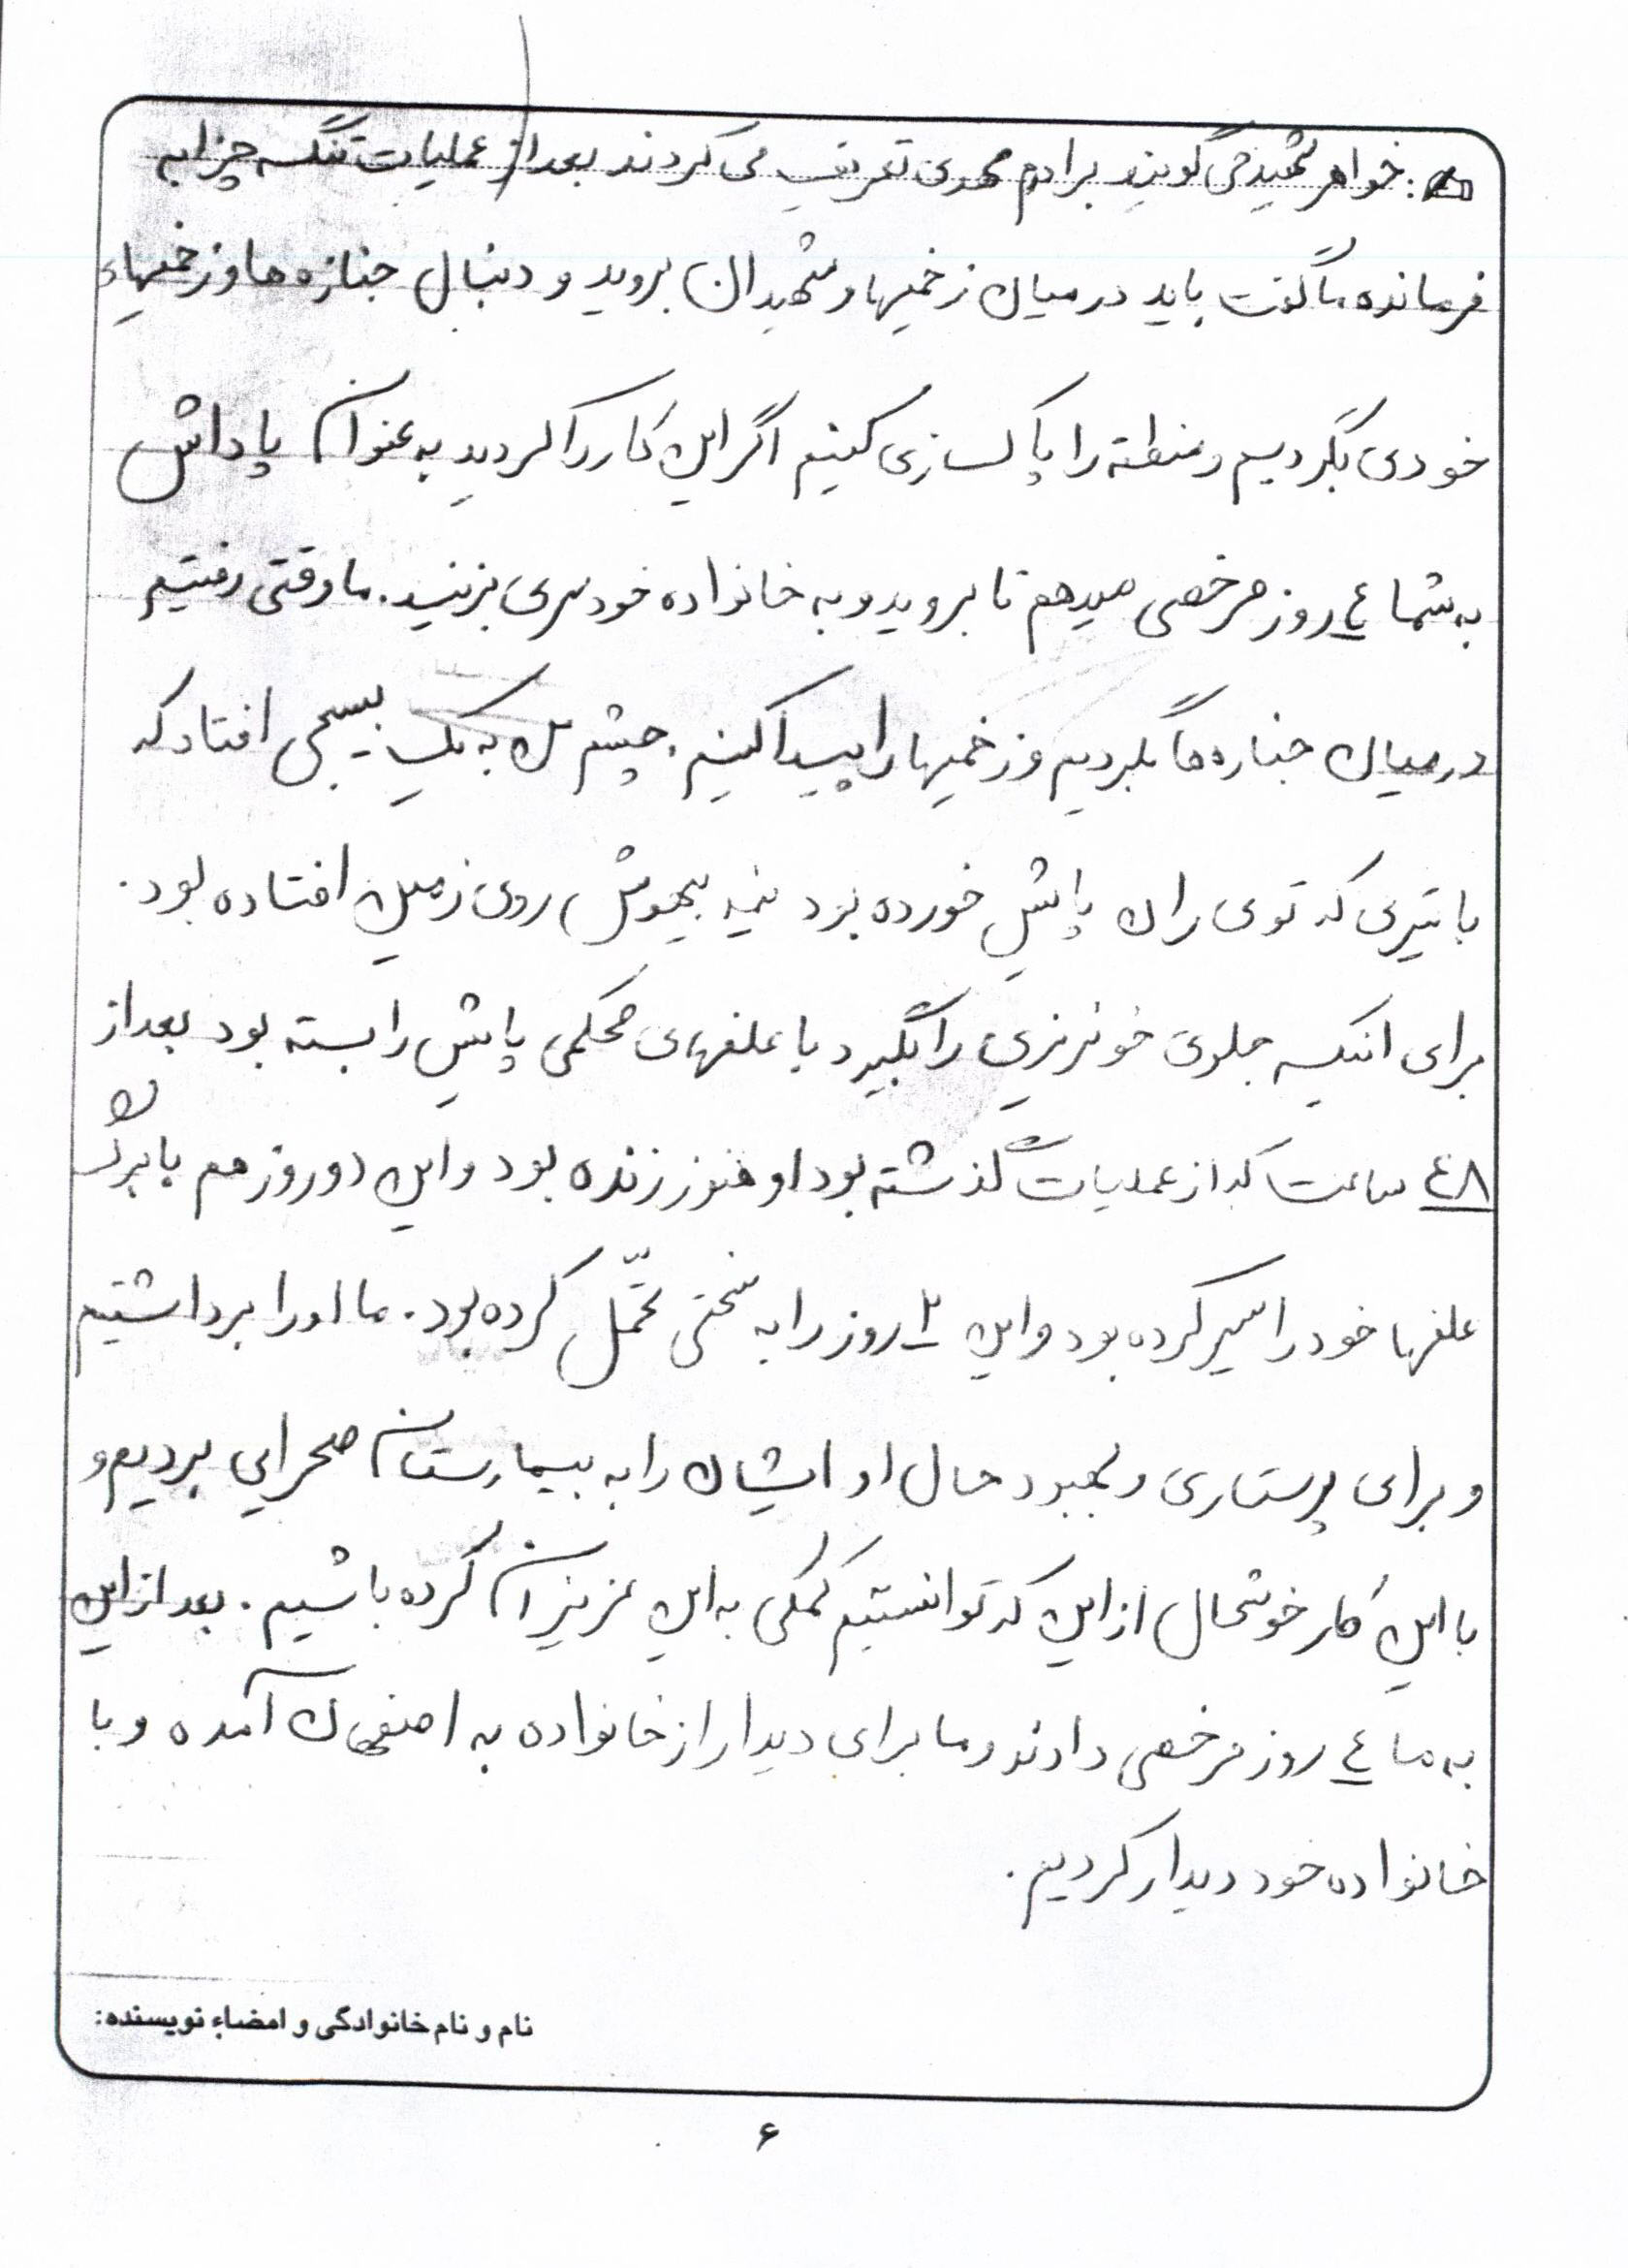 : خواهر شهید می گویند برادرم مهدی تعریف می کردند بعد از عملیات تنگه چزابه
فرمانده ما گفت باید در میان زخمیها و شهیدان بروید و دنبال جنازه ها و زخمیهای
خودی بگردیم و منطقه را پاکسازی کنیم اگر این کار را کردید به عنوان پاداش
به شما ٤ روز مرخصی میدهم تا بروید و به خانواده خود سری بزنید. ما وقتی رفتیم
در میان جنازه ها بگردیم و زخمیها را پیدا کنیم. چشم من به یک بسیجی افتاد که
با تیری که توی ران پایش خورده بود نیمه بیهوش روی زمین افتاده بود.
برای اینکه جلوی خونریزی را بگیرد با علفهای محکمی پایش را بسته بود بعد از
٤٨ ساعت که از عملیات گذشته بود او هنوز زنده بود و این دو روز هم با برگ
علفها خود را سیر کرده بود و این ٢ روز را به سختی تحمّل کرده بود. ما او را برداشتیم
و برای پرستاری و بهبود حال او ایشان را به بیمارستان صحرایی بردیم و
با این کار خوشحال از این که توانستیم کمکی به این عزیزان کرده باشیم. بعد از این
به ما ٤ روز مرخصی دادند و ما برای دیدار از خانواده به اصفهان آمده و با
خانواده خود دیدار کردیم.
نام و نام خانوادگی و امضاء نویسنده:
۶